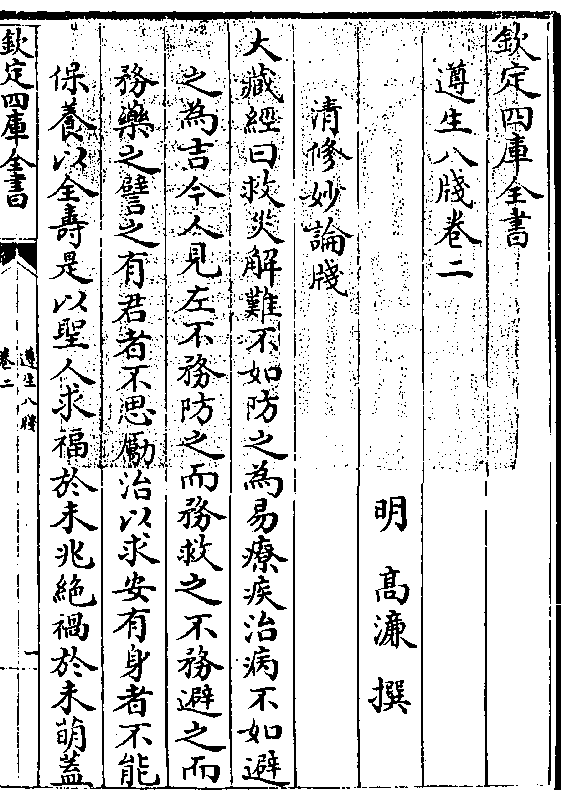 欽定四庫全書
遵生八牋卷二
明 高濂 撰
清修妙論牋
大藏經曰救災解難不如防之為易療疾治病不如避
之為吉今人見左不務防之而務救之不務避之而
務藥之譬之有君者不思勵治以求安有身者不能
保養以全壽是以聖人求福於未兆絶禍於未萌蓋
欽定四庫全書
遵生八牋
卷二
一